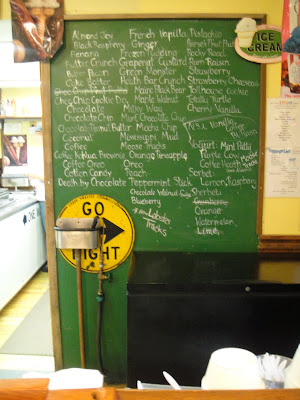 ICE
CREAM
Almond Joy French Vanilla Pistachio
Black Raspberry Ginger
Banana Frozen Pudding Rocky Road
Butter Crunch Grapenut Custard Rum Raisin
Butter Pecan Green Monster Strawberry
Cake Batter Heath Bar Crunch Strawberry Cheesecake
Maine Black Bear Tollhouse Cookie
Choc Chip Cookie Dough Maple Walnut Totally Turtle
Chocolate Milky Way Cherry Vanilla
Chocolate Chip Mint Chocolate Chip
Chocolate Peanut Butter Mocha Chip
Coconut Mississippi Mud
Coffee Moose Tracks
Coffee Kahlua Brownie Orange Pineapple
Coffee Oreo Oreo
Cotton Candy Peach
Death by Chocolate Peppermint Stick
Chocolate Walnut
Blueberry
Lobster
Tracks
N.S.A. Vanilla
Coffee
Yogurt: Mint Patty
Purple Cow
Coffee Heath
Moose
Sorbet:
Lemon, Raspberry
Sherbets
Orange
Watermelon
Lime
GO
RIGHT